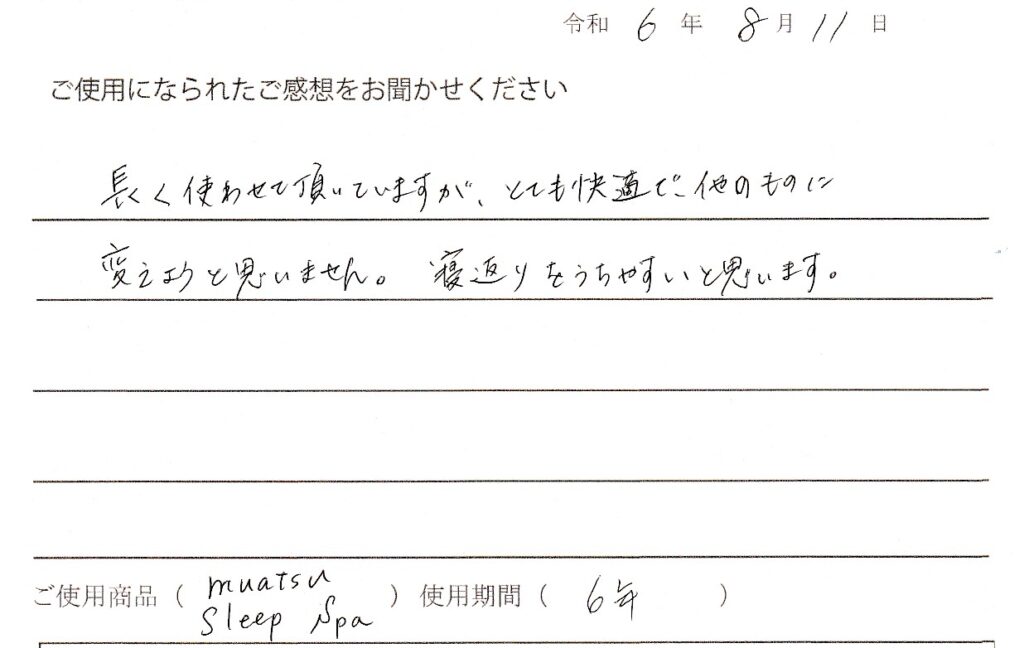 令和 6 年 8 月 11 日
ご使用になられたご感想をお聞かせください
長く使わせて頂いていますが、とても快適で他のものに
変えようと思いません。寝返りをうちやすいと思います。
ご使用商品（ muatsu Sleep Spa ）使用期間（ 6年 ）